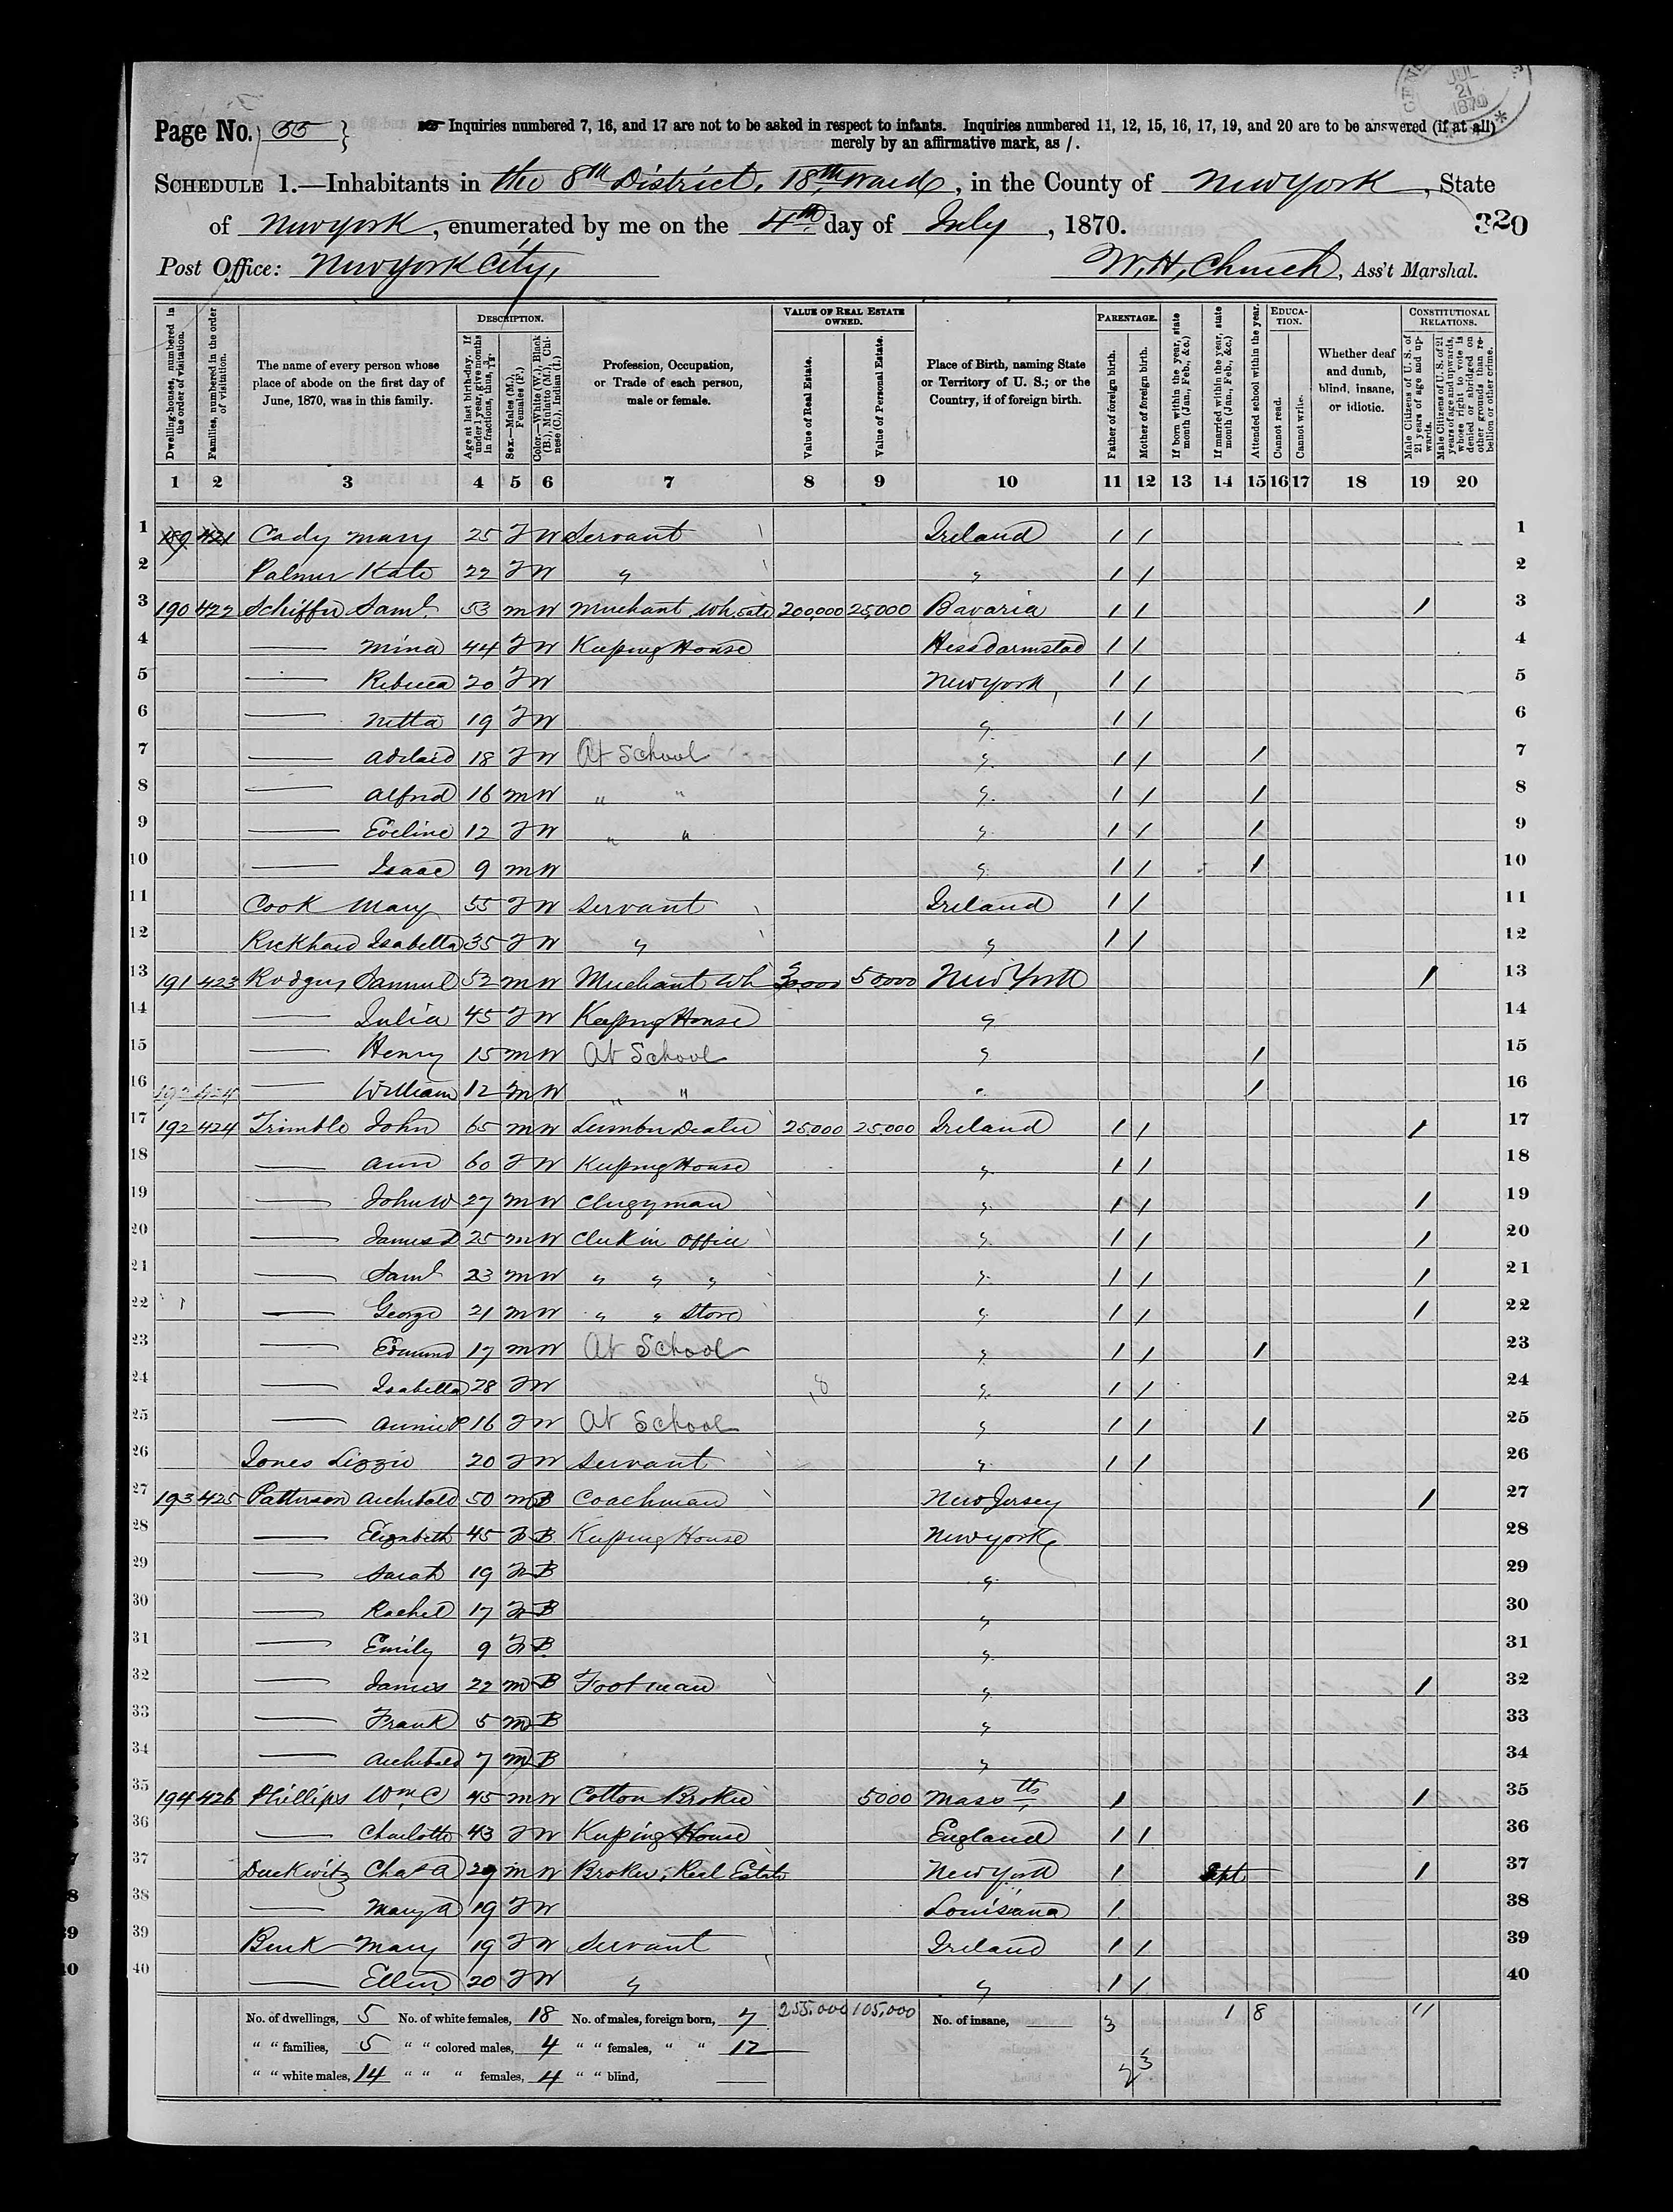 GENE JUL 21 1870
Page No. 55
Inquiries numbered 7, 16, and 17 are not to be asked in respect to infants. Inquiries numbered 11, 12, 15, 16, 17, 19, and 20 are to be answered (if at all)
merely by an affirmative mark, as /.
SCHEDULE 1.—Inhabitants in the 8th District, 18th Ward, in the County of New York, State
of New York, enumerated by me on the 4th day of July, 1870.
320
Post Office: New York City, W. H. Church, Ass't Marshal.
Dwelling-houses, numbered in the order of visitation.
Families, numbered in the order of visitation.
The name of every person whose place of abode on the first day of June, 1870, was in this family.
DESCRIPTION.
Age at last birth-day. If under 1 year, give months in fractions, thus, 3/12
Sex.—Males (M.), Females (F.)
Color.—White (W.), Black (B.), Mulatto (M.), Chinese (C.), Indian (I.)
Profession, Occupation, or Trade of each person, male or female.
VALUE OF REAL ESTATE OWNED.
Value of Real Estate.
Value of Personal Estate.
Place of Birth, naming State or Territory of U. S.; or the Country, if of foreign birth.
PARENTAGE.
Father of foreign birth.
Mother of foreign birth.
If born within the year, state month (Jan., Feb., &c.)
If married within the year, state month (Jan., Feb., &c.)
Attended school within the year.
EDUCATION.
Cannot read.
Cannot write.
Whether deaf and dumb, blind, insane, or idiotic.
CONSTITUTIONAL RELATIONS.
Male Citizens of U. S. of 21 years of age and upwards.
Male Citizens of U. S. of 21 years of age and upwards, whose right to vote is denied or abridged on other grounds than rebellion or other crime.
1 2 3 4 5 6 7 8 9 10 11 12 13 14 15 16 17 18 19 20
1 189 421 Cady Mary 25 F W Servant Ireland / / 1
2 Palmer Kate 22 F W " " / / 2
3 190 422 Schiffer Saml 53 M W Merchant Wh.sale 200,000 25,000 Bavaria / / / 3
4 — Mina 44 F W Keeping House Hess Darmstad / / 4
5 — Rebecca 20 F W New York / / 5
6 — Netta 19 F W " / / 6
7 — Adelaid 18 F W At School " / / / 7
8 — Alfred 16 M W " " " / / / 8
9 — Eveline 12 F W " " " / / / 9
10 — Isaac 9 M W " / / / 10
11 Cook Mary 55 F W Servant Ireland / / 11
12 Rickhard Isabella 35 F W " " / / 12
13 191 423 Rodgers Samuel 52 M W Merchant Wh 30,000 50000 New York / 13
14 — Julia 45 F W Keeping House " 14
15 — Henry 15 M W At School " / 15
16 192 424 — William 12 M W " " " / 16
17 192 424 Trimble John 65 M W Lumber Dealer 25000 25000 Ireland / / / 17
18 — Ann 60 F W Keeping House " / / 18
19 — John W 27 M W Clergyman " / / / 19
20 — James D 25 M W Clerk in Office " / / / 20
21 — Saml 23 M W " " " " / / / 21
22 — George 21 M W " " Store " / / / 22
23 — Edmund 17 M W At School " / / / 23
24 — Isabella 28 F W 8 " / / 24
25 — Annie P 16 F W At School " / / / 25
26 Jones Lizzie 20 F W Servant " / / 26
27 193 425 Patterson Archibald 50 M B Coachman New Jersey / 27
28 — Elizabeth 45 F B Keeping House New York 28
29 — Sarah 19 F B " 29
30 — Rachel 17 F B " 30
31 — Emily 9 F B " 31
32 — James 22 M B Footman " / 32
33 — Frank 5 M B " 33
34 — Archibald 7 M B " 34
35 194 426 Phillips Wm C 45 M W Cotton Broker 5000 Masstts / / 35
36 — Charlotte 43 F W Keeping House England / / 36
37 Duckwitz Chas A 29 M W Broker, Real Estate New York / Sept / 37
38 — Mary A 19 F W Louisiana / 38
39 Buck Mary 19 F W Servant Ireland / / 39
40 — Ellen 20 F W " " / / 40
No. of dwellings, 5 No. of white females, 18 No. of males, foreign born, 7 255,000 105,000 No. of insane, 3 1 8 11
" " families, 5 " " colored males, 4 " " females, " " 12
" " white males, 14 " " " females, 4 " " blind,